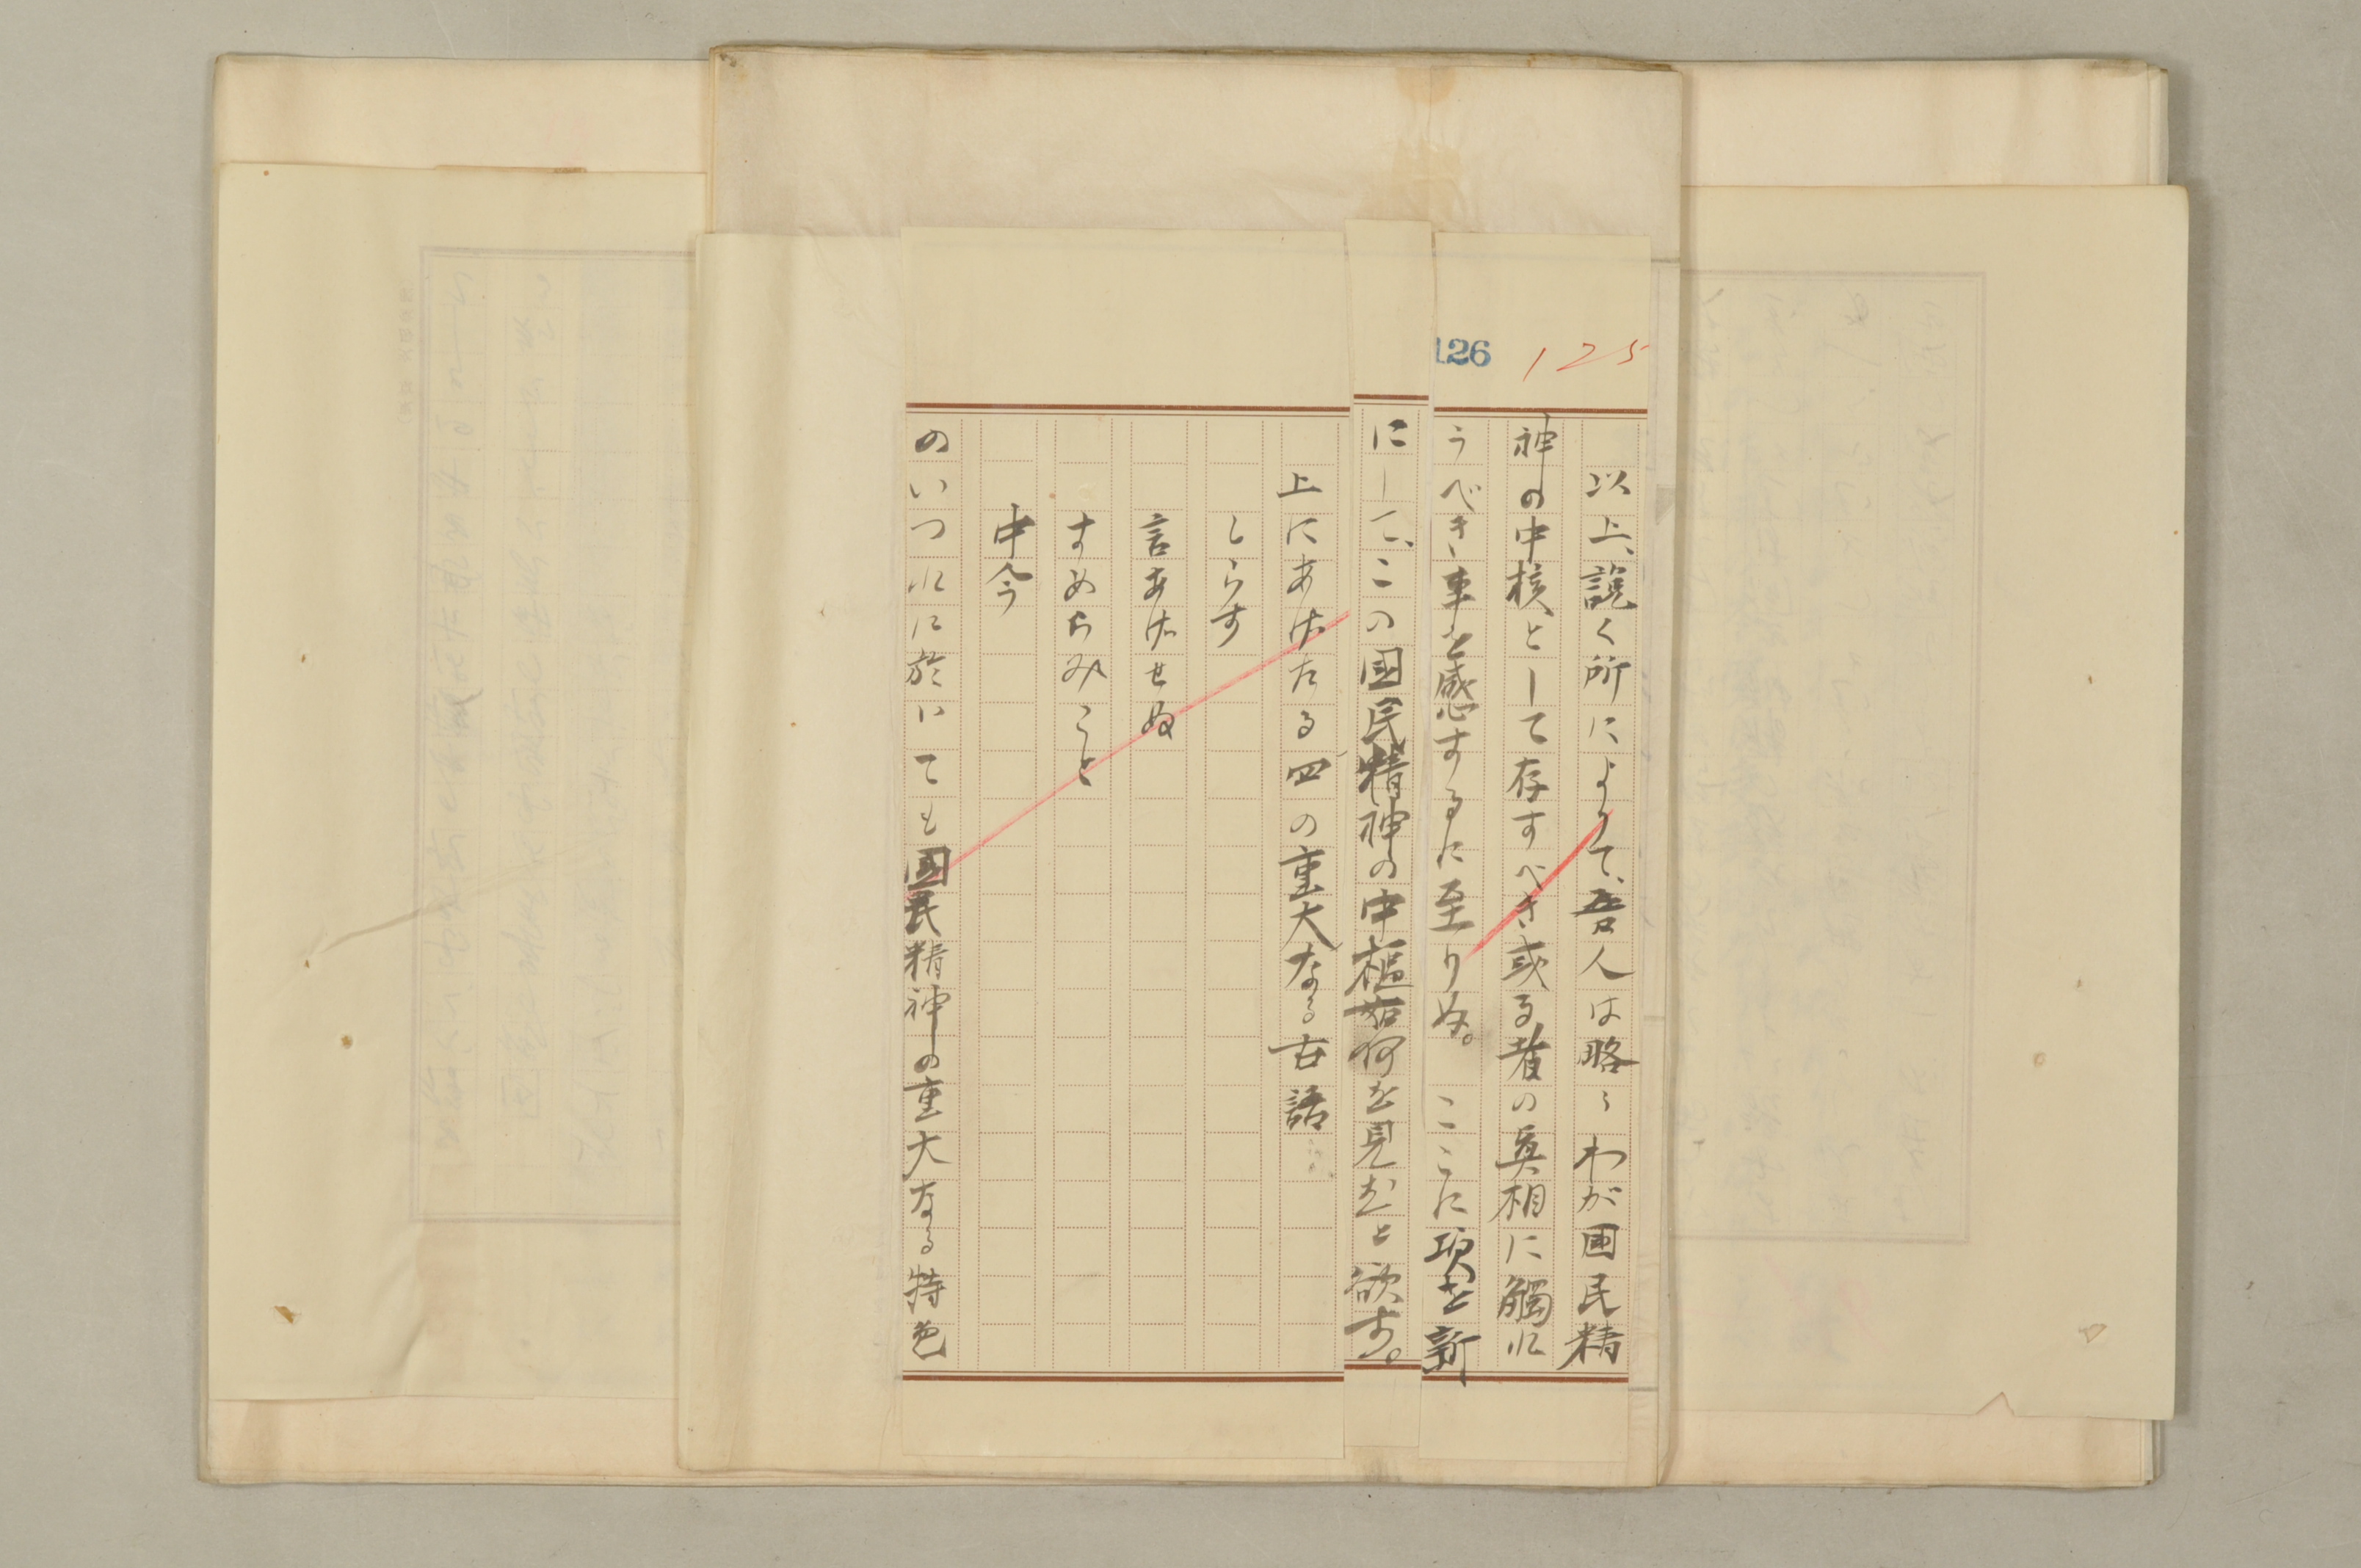 126 125
以上、說く所によりて、吾人は略〻わが国民精
神の中核として存すべき或る者の真相に觸れ
うべき事を感ずるに至りぬ。ここに項を新
にして、この国民精神の中樞如何を見むと欲す。
上にあげたる四の重大なる古語
しらす
言あげせぬ
すめらみこと
中今
のいづれに於いても国民精神の重大なる特色